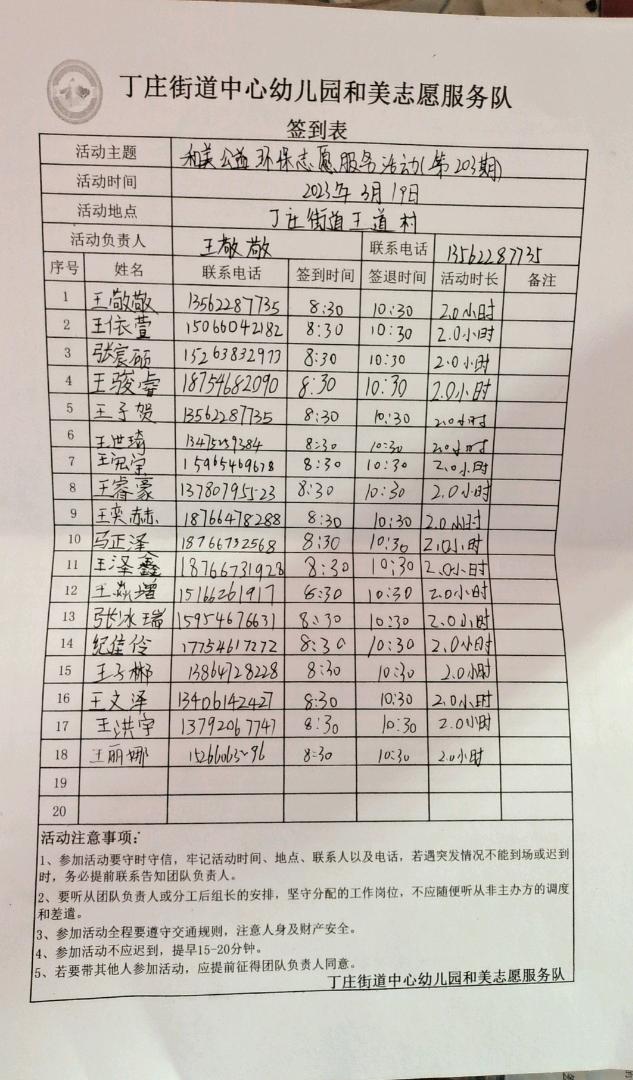 丁庄街道中心幼儿园和美志愿服务队
签到表
活动主题 和美公益环保志愿服务活动(第203期)
活动时间 2023年3月19日
活动地点 丁庄街道王道村
活动负责人 王敬敬 联系电话 13562287735
序号 姓名 联系电话 签到时间 签退时间 活动时长 备注
1 王敬敬 13562287735 8:30 10:30 2.0小时
2 王依萱 15066042182 8:30 10:30 2.0小时
3 张宸硕 15263832973 8:30 10:30 2.0小时
4 王骏睿 18754682090 8:30 10:30 2.0小时
5 王子贺 13562287735 8:30 10:30 2.0小时
6 王世琦 8:30 10:30 2.0小时
7 15965469678 8:30 10:30 2.0小时
8 王睿豪 13780795523 8:30 10:30 2.0小时
9 王奕赫 18766478288 8:30 10:30 2.0小时
10 马正泽 18766732568 8:30 10:30 2.0小时
11 王泽鑫 18766731928 8:30 10:30 2.0小时
12 15166261917 8:30 10:30 2.0小时
13 张冰瑞 15954676631 8:30 10:30 2.0小时
14 纪佳伶 17754617272 8:30 10:30 2.0小时
15 王子郴 13864728228 8:30 10:30 2.0小时
16 王文泽 13406142427 8:30 10:30 2.0小时
17 王洪宇 13792067747 8:30 10:30 2.0小时
18 王丽娜 8:30 10:30 2.0小时
19
20
活动注意事项:
1、参加活动要守时守信,牢记活动时间、地点、联系人以及电话,若遇突发情况不能到场或迟到
时,务必提前联系告知团队负责人。
2、要听从团队负责人或分工后组长的安排,坚守分配的工作岗位,不应随便听从非主办方的调度
和差遣。
3、参加活动全程要遵守交通规则,注意人身及财产安全。
4、参加活动不应迟到,提早15-20分钟。
5、若要带其他人参加活动,应提前征得团队负责人同意。
丁庄街道中心幼儿园和美志愿服务队